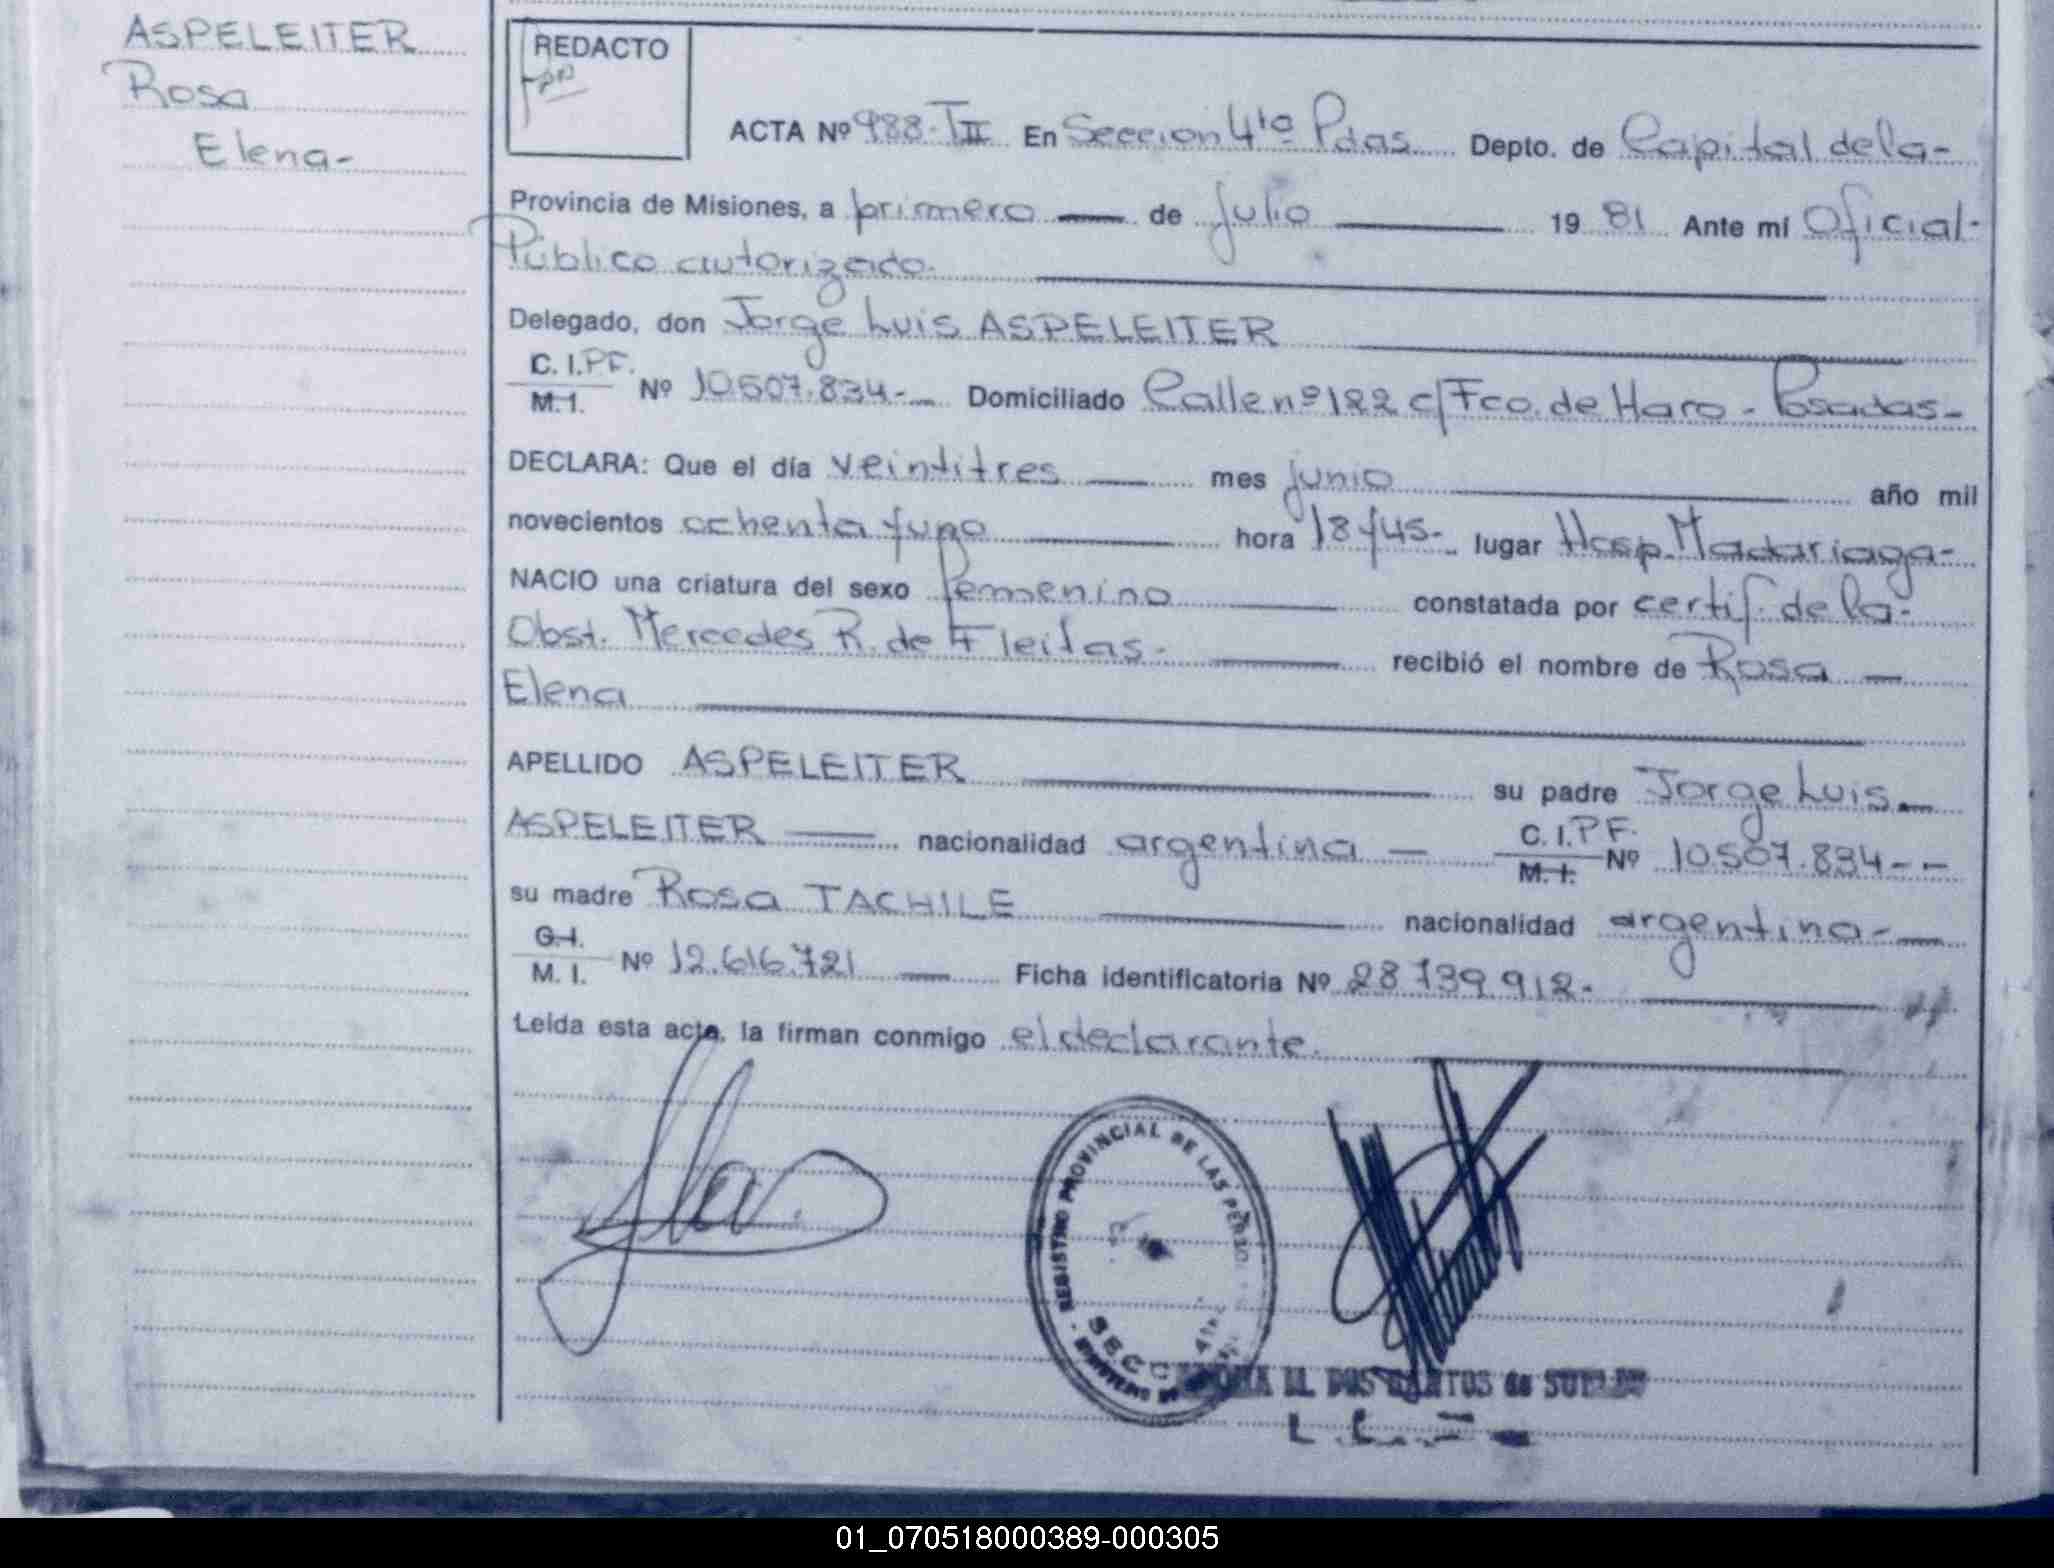 ASPELEITER
Rosa
Elena-
REDACTO
ACTA Nº 988-TIII En Seccion 4ta Pdas. Depto. de Capital de la-
Provincia de Misiones, a primero de julio 1981 Ante mí Oficial-
Público autorizado.
Delegado, don Jorge Luis ASPELEITER
C. I. P.F.
M. I. Nº 10.507.834-- Domiciliado Calle nº 122 c/Fco. de Haro - Posadas-
DECLARA: Que el día veintitres mes junio año mil
novecientos ochenta y uno hora 18 y 45- lugar Hosp. Madariaga-
NACIO una criatura del sexo femenino constatada por certif. de la-
Obst. Mercedes R. de Fleitas.- recibió el nombre de Rosa
Elena
APELLIDO ASPELEITER su padre Jorge Luis
ASPELEITER nacionalidad argentina C. I. P.F.
M. I. Nº 10.507.834--
su madre Rosa TACHILE nacionalidad argentina-
C. I.
M. I. Nº 12.616.721 Ficha identificatoria Nº 28.739.912-
Leída esta acta, la firman conmigo el declarante.
REGISTRO PROVINCIAL DE LAS PERSO
SECC 4ta
M. DOS SANTOS de
01_070518000389-000305